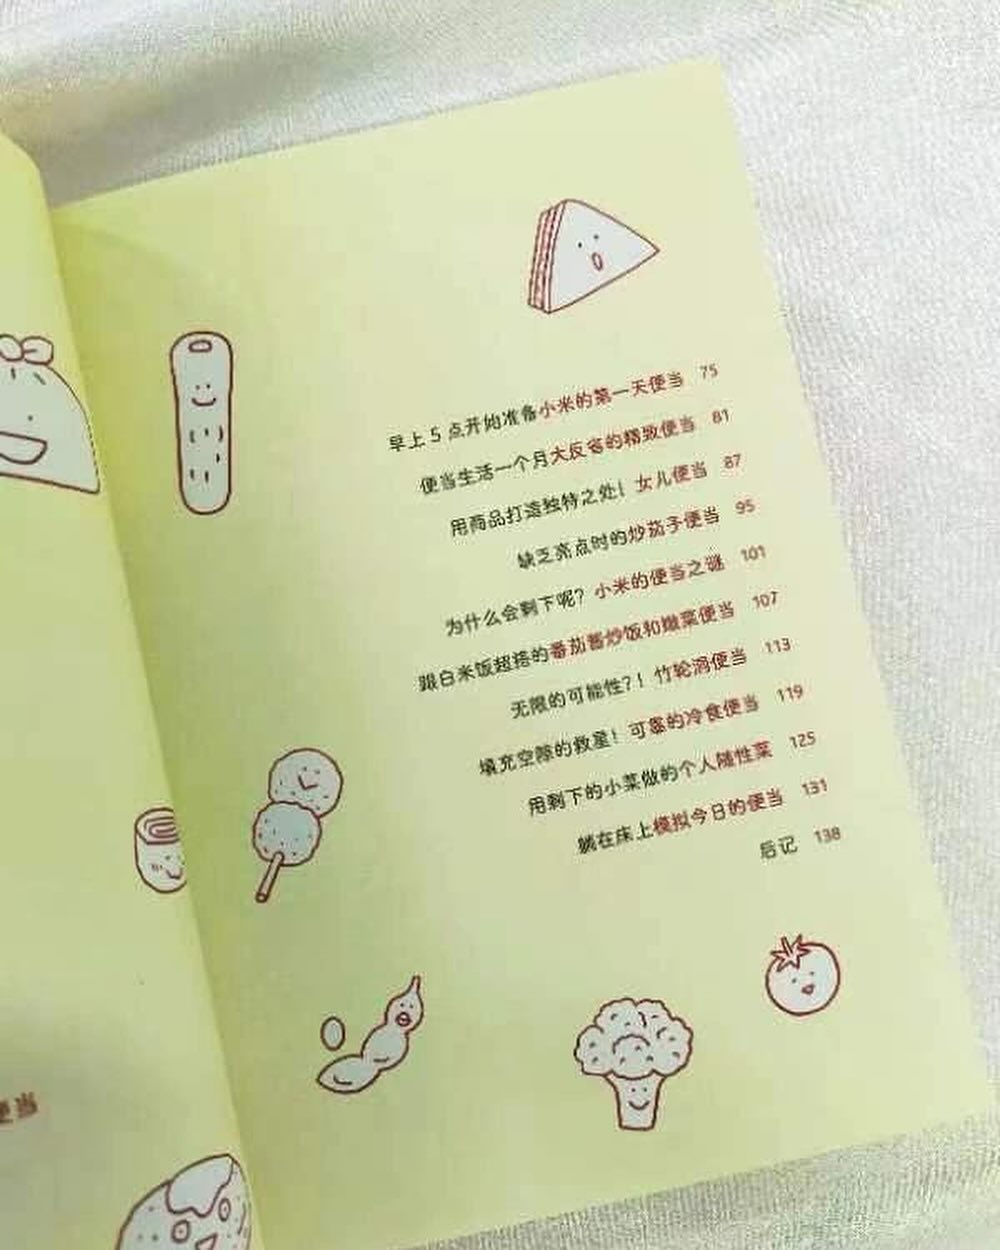 早上5点开始准备小米的第一天便当 75
便当生活一个月大反省的精致便当 81
用商品打造独特之处！女儿便当 87
缺乏亮点时的炒茄子便当 95
为什么会剩下呢？小米的便当之谜 101
跟白米饭超搭的番茄酱炒饭和嫩菜便当 107
无限的可能性？！竹轮洞便当 113
填充空隙的救星！可靠的冷食便当 119
用剩下的小菜做的个人随性菜 125
躺在床上模拟今日的便当 131
后记 138
便当